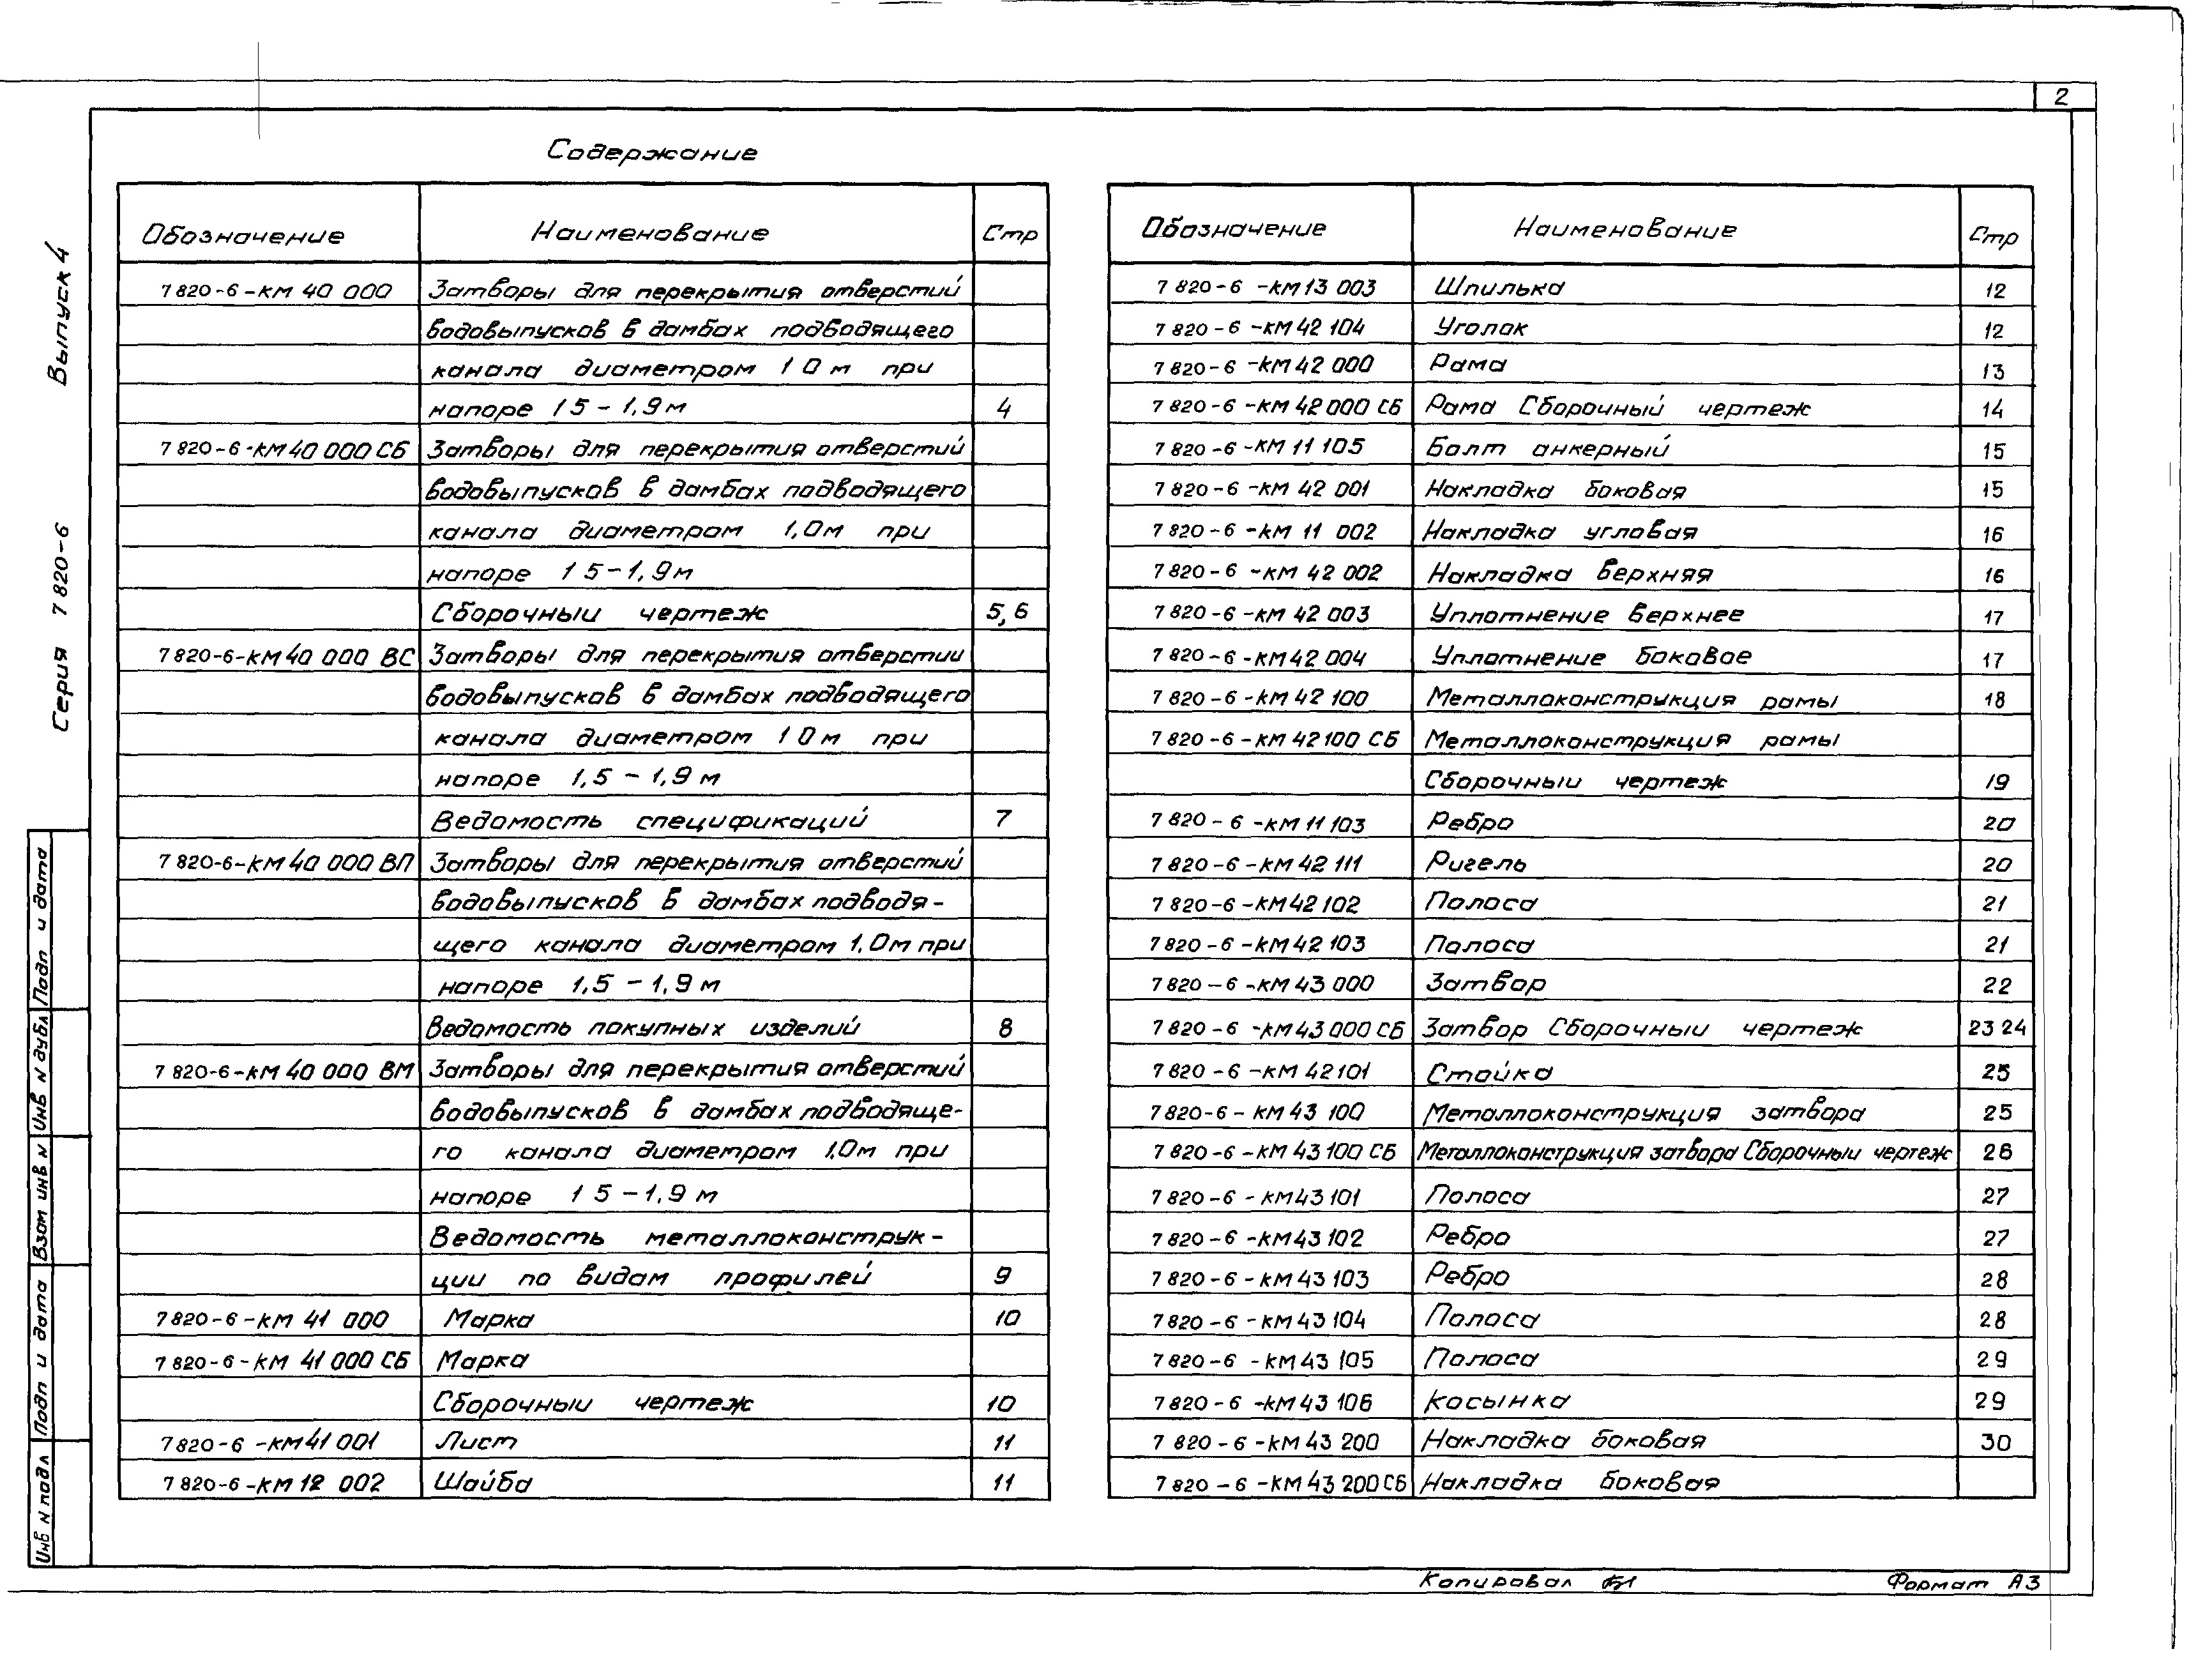 2
Содержание
Обозначение Наименование Стр
7 820-6-КМ 40 000 Затворы для перекрытия отверстий
водовыпусков в дамбах подводящего
канала диаметром 1 0 м при
напоре 1 5 - 1,9 м 4
7 820-6-КМ 40 000 СБ Затворы для перекрытия отверстий
водовыпусков в дамбах подводящего
канала диаметром 1,0м при
напоре 1 5-1,9м
Сборочныи чертеж 5,6
7 820-6-КМ 40 000 ВС Затворы для перекрытия отверстии
водовыпусков в дамбах подводящего
канала диаметром 1 0 м при
напоре 1,5 - 1,9 м
Ведомость спецификаций 7
7 820-6-КМ 40 000 ВП Затворы для перекрытия отверстий
водовыпусков в дамбах подводя-
щего канала диаметром 1,0м при
напоре 1,5 - 1,9 м
Ведомость покупных изделий 8
7 820-6-КМ 40 000 ВМ Затворы для перекрытия отверстий
водовыпусков в дамбах подводяще-
го канала диаметром 1,0м при
напоре 1 5 - 1,9 м
Ведомость металлоконструк-
ции по видам профилей 9
7 820-6-КМ 41 000 Марка 10
7 820-6-КМ 41 000 СБ Марка
Сборочныи чертеж 10
7 820-6-КМ 41 001 Лист 11
7 820-6-КМ 12 002 Шайба 11
Обозначение Наименование Стр
7 820-6-КМ 13 003 Шпилька 12
7 820-6-КМ 42 104 Уголок 12
7 820-6-КМ 42 000 Рама 13
7 820-6-КМ 42 000 СБ Рама Сборочный чертеж 14
7 820-6-КМ 11 105 Болт анкерный 15
7 820-6-КМ 42 001 Накладка боковая 15
7 820-6-КМ 11 002 Накладка угловая 16
7 820-6-КМ 42 002 Накладка верхняя 16
7 820-6-КМ 42 003 Уплотнение верхнее 17
7 820-6-КМ 42 004 Уплотнение боковое 17
7 820-6-КМ 42 100 Металлоконструкция рамы 18
7 820-6-КМ 42 100 СБ Металлоконструкция рамы
Сборочныи чертеж 19
7 820-6-КМ 11 103 Ребро 20
7 820-6-КМ 42 111 Ригель 20
7 820-6-КМ 42 102 Полоса 21
7 820-6-КМ 42 103 Полоса 21
7 820-6-КМ 43 000 Затвор 22
7 820-6-КМ 43 000 СБ Затвор Сборочныи чертеж 23 24
7 820-6-КМ 42 101 Стойка 25
7 820-6-КМ 43 100 Металлоконструкция затвора 25
7 820-6-КМ 43 100 СБ Металлоконструкция затвора Сборочныи чертеж 26
7 820-6-КМ 43 101 Полоса 27
7 820-6-КМ 43 102 Ребро 27
7 820-6-КМ 43 103 Ребро 28
7 820-6-КМ 43 104 Полоса 28
7 820-6-КМ 43 105 Полоса 29
7 820-6-КМ 43 106 Косынка 29
7 820-6-КМ 43 200 Накладка боковая 30
7 820-6-КМ 43 200 СБ Накладка боковая
Серия 7 820-6 Выпуск 4
Инв N подл Подп и дата Взам инв N Инв N дубл Подп и дата
Копировал
Формат А3